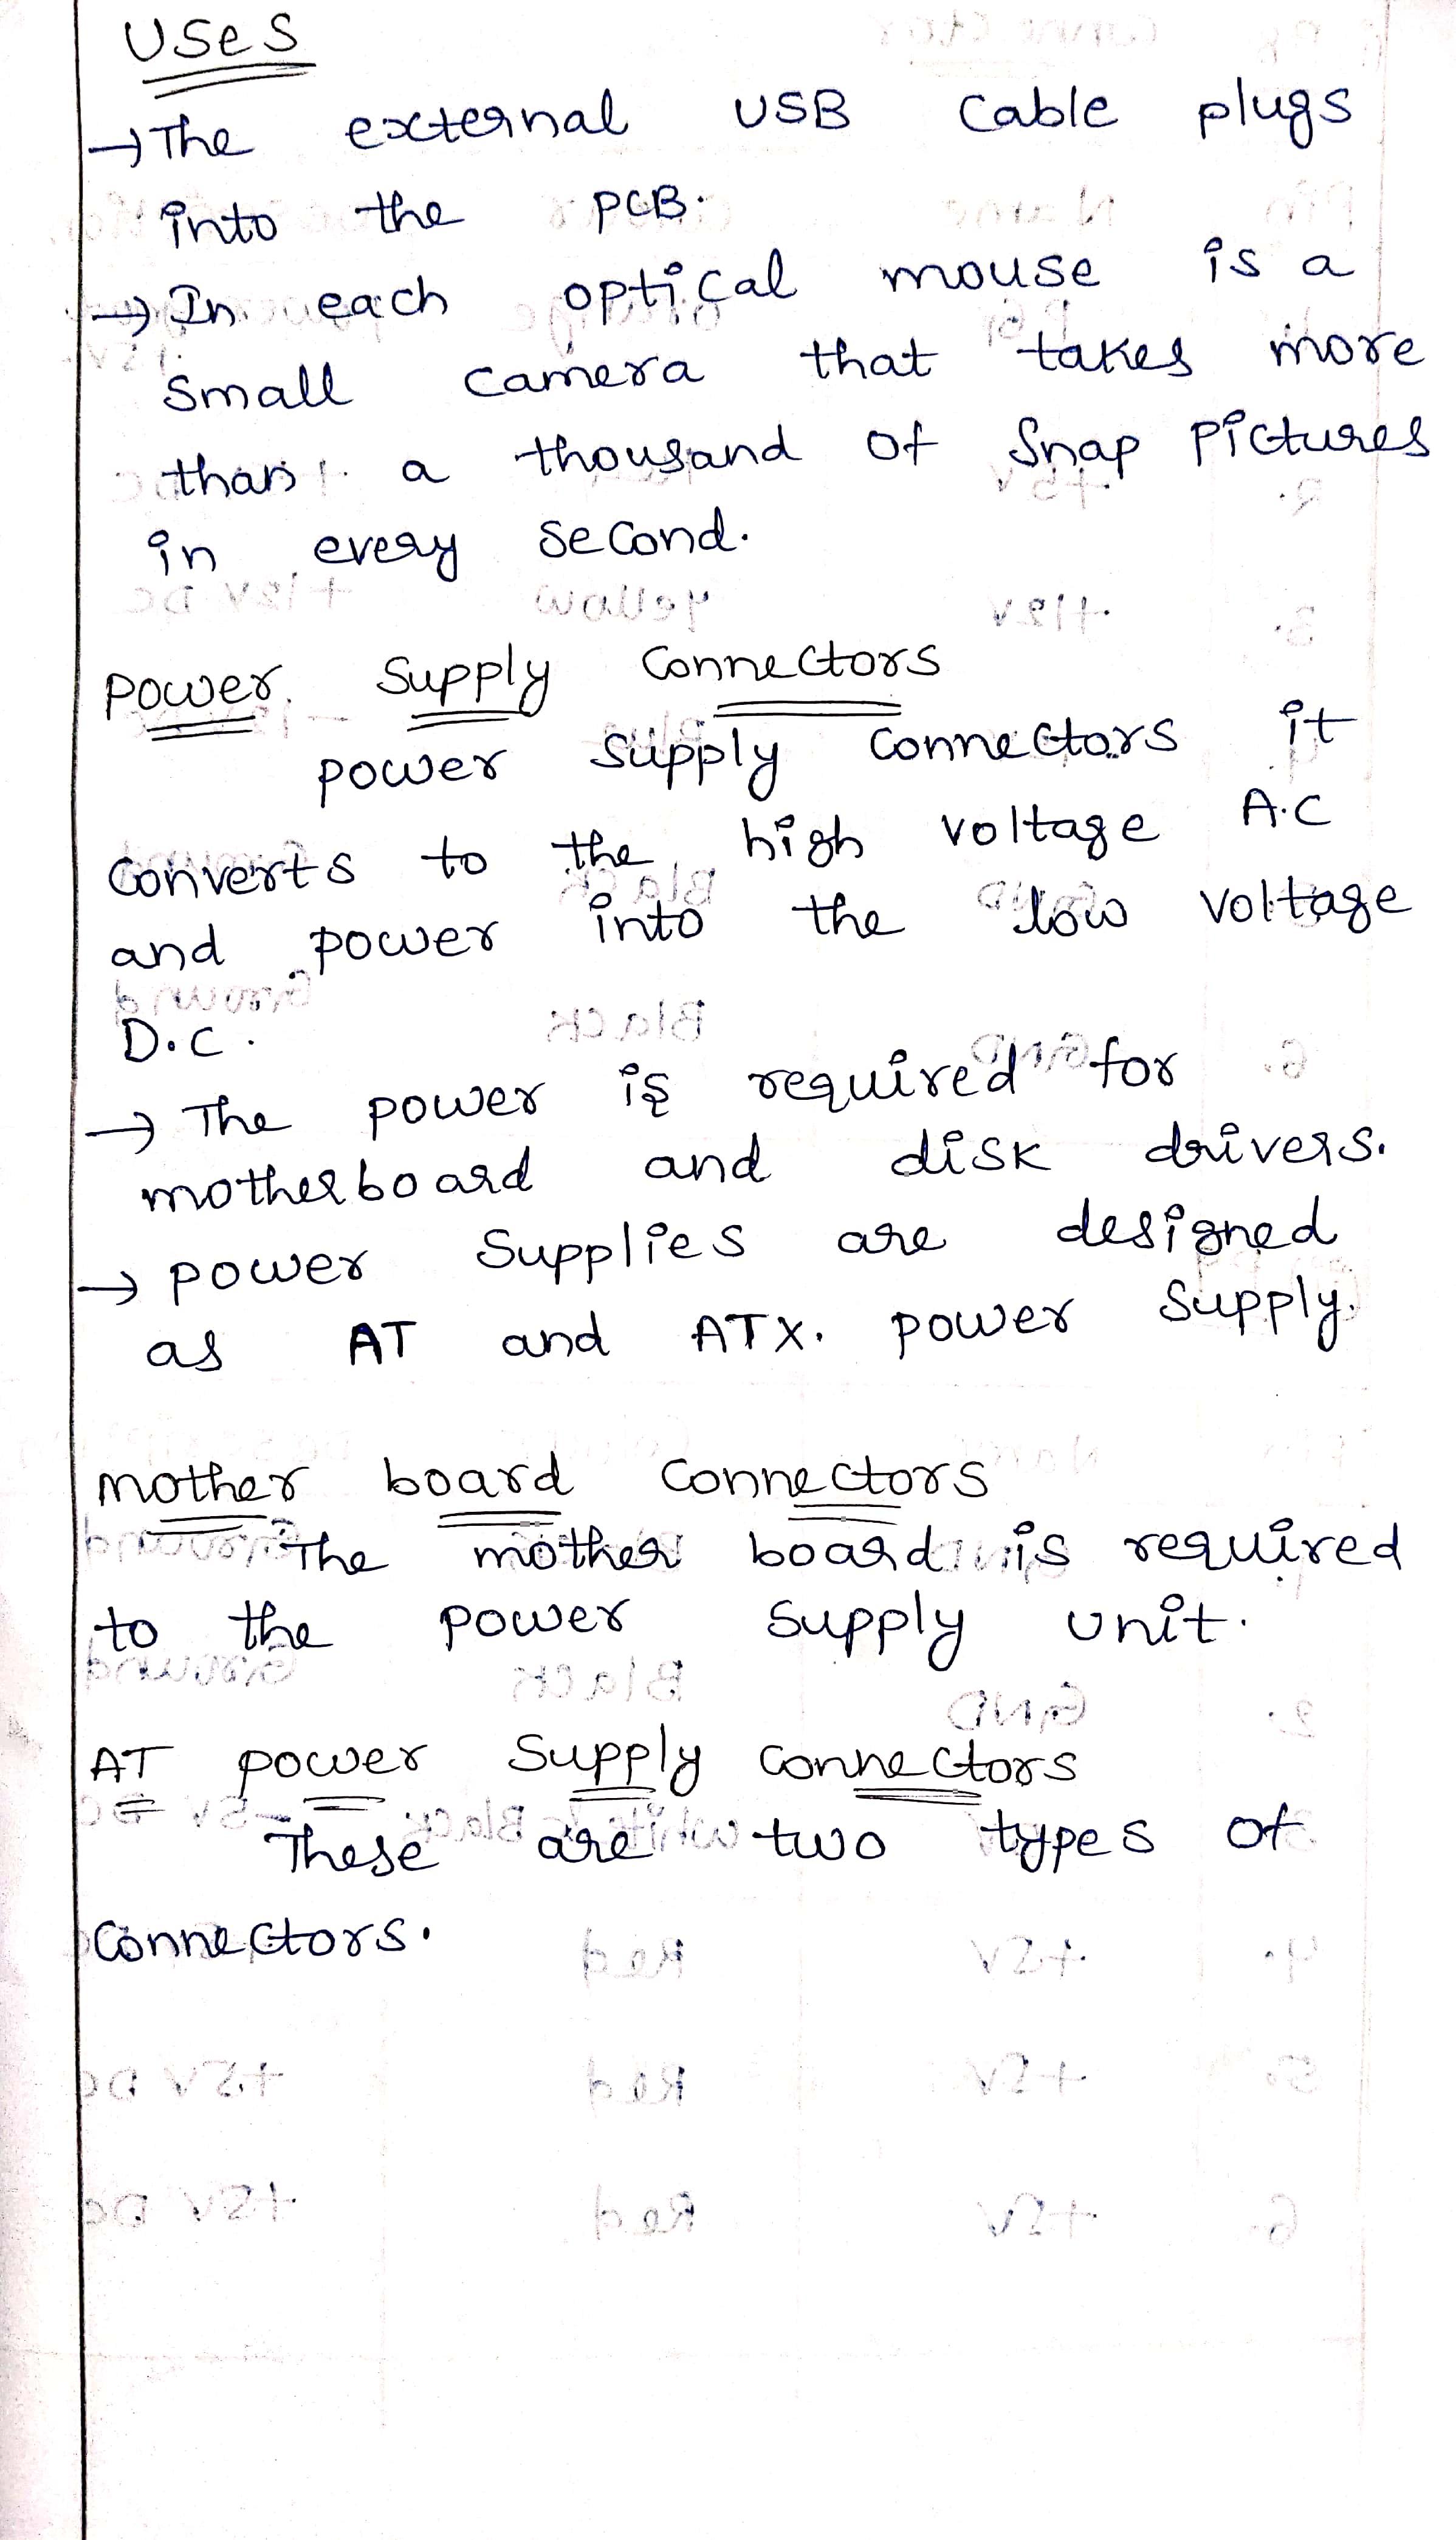 Uses
→ The external USB cable plugs
into the PCB.
→ In each optical mouse is a
small camera that takes more
than a thousand of Snap Pictures
in every second.
Power Supply Connectors
power supply connectors it
converts to the high voltage A.C
and power into the low voltage
D.C.
→ The power is required for
motherboard and disk drivers.
→ power supplies are designed
as AT and ATX. power supply.
mother board connectors
The mother board is required
to the power supply unit.
AT power Supply connectors
These are two types of
connectors.